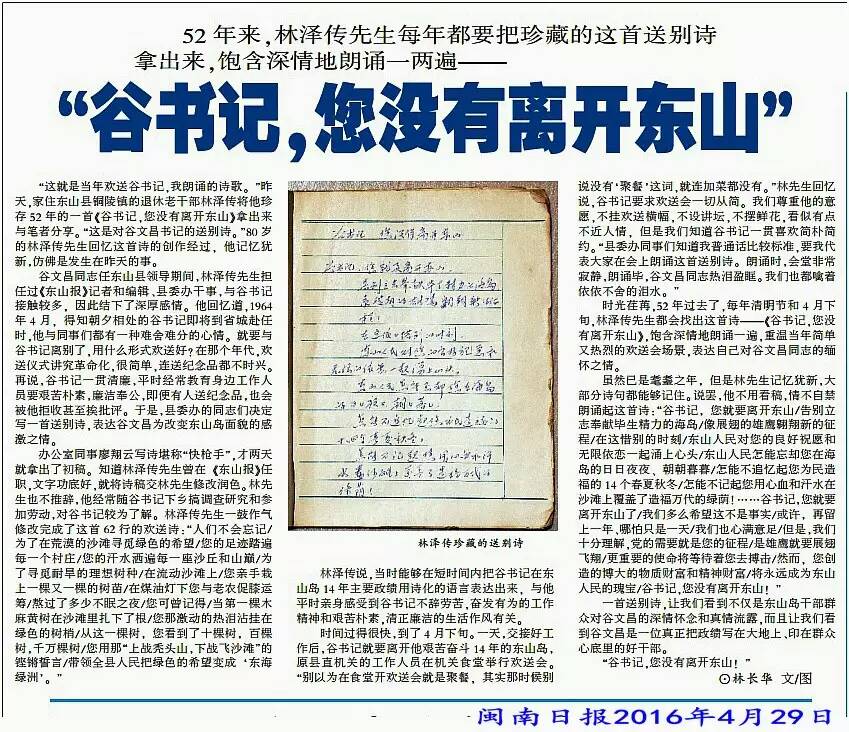 52年来,林泽传先生每年都要把珍藏的这首送别诗
拿出来,饱含深情地朗诵一两遍——
“谷书记,您没有离开东山”
“这就是当年欢送谷书记,我朗诵的诗歌。”昨
天,家住东山县铜陵镇的退休老干部林泽传将他珍
存52年的一首《谷书记,您没有离开东山》拿出来
与笔者分享。“这是对谷文昌书记的送别诗。”80岁
的林泽传先生回忆这首诗的创作经过,他记忆犹
新,仿佛是发生在昨天的事。
谷文昌同志任东山县领导期间,林泽传先生担
任过《东山报》记者和编辑、县委办干事,与谷书记
接触较多,因此结下了深厚感情。他回忆道,1964
年4月,得知朝夕相处的谷书记即将到省城赴任
时,他与同事们都有一种难舍难分的心情。就要与
谷书记离别了,用什么形式欢送好?在那个年代,欢
送仪式讲究革命化,很简单,连送纪念品都不时兴。
再说,谷书记一贯清廉,平时经常教育身边工作人
员要艰苦朴素,廉洁奉公,即便有人送纪念品,也会
被他拒收甚至挨批评。于是,县委办的同志们决定
写一首送别诗,表达谷文昌为改变东山岛面貌的感
激之情。
办公室同事廖翔云写诗堪称“快枪手”,才两天
就拿出了初稿。知道林泽传先生曾在《东山报》任
职,文字功底好,就将诗稿交林先生修改润色。林先
生也不推辞,他经常随谷书记下乡搞调查研究和参
加劳动,对谷书记较为了解。林泽传先生一鼓作气
修改完成了这首62行的欢送诗:“人们不会忘记/
为了在荒漠的沙滩寻觅绿色的希望/您的足迹踏遍
每一个村庄/您的汗水洒遍每一座沙丘和山巅/为
了寻觅耐旱的理想树种/在流动沙滩上/您亲手栽
上一棵又一棵的树苗/在煤油灯下您与老农促膝运
筹/熬过了多少不眠之夜/您可曾记得/当第一棵木
麻黄树在沙滩里扎下了根/您那激动的热泪沾挂在
绿色的树梢/从这一棵树,您看到了十棵树,百棵
树,千万棵树/您用那“上战秃头山,下战飞沙滩”的
铿锵誓言/带领全县人民把绿色的希望变成‘东海
绿洲’。”
谷书记 您没有离开东山
林泽传珍藏的送别诗
林泽传说,当时能够在短时间内把谷书记在东
山岛14年主要政绩用诗化的语言表达出来,与他
平时亲身感受到谷书记不辞劳苦,奋发有为的工作
精神和艰苦朴素,清正廉洁的生活作风有关。
时间过得很快,到了4月下旬。一天,交接好工
作后,谷书记就要离开他艰苦奋斗14年的东山岛,
原县直机关的工作人员在机关食堂举行欢送会。
“别以为在食堂开欢送会就是聚餐,其实那时候别
说没有‘聚餐’这词,就连加菜都没有。”林先生回忆
说,谷书记要求欢送会一切从简。我们尊重他的意
愿,不挂欢送横幅,不设讲坛,不摆鲜花,看似有点
不近人情,但是我们知道谷书记一贯喜欢简朴简
约。“县委办同事们知道我普通话比较标准,要我代
表大家在会上朗诵这首送别诗。朗诵时,会堂非常
寂静,朗诵毕,谷文昌同志热泪盈眶。我们也都噙着
依依不舍的泪水。”
时光荏苒,52年过去了,每年清明节和4月下
旬,林泽传先生都会找出这首诗——《谷书记,您没
有离开东山》,饱含深情朗诵一遍,重温当年简单
又热烈的欢送会场景,表达自己对谷文昌同志的缅
怀之情。
虽然已是耄耋之年,但是林先生记忆犹新,大
部分诗句都能够记住。说罢,他不用看稿,情不自禁
朗诵起这首诗:“谷书记,您就要离开东山/告别立
志奉献毕生精力的海岛/像展翅的雄鹰翱翔新的征
程/在这惜别的时刻/东山人民对您的良好祝愿和
无限依恋一起涌上心头/东山人民怎能忘却您在海
岛的日日夜夜、朝朝暮暮/怎能不追忆起您为民造
福的14个春夏秋冬/怎能不记起您用心血和汗水在
沙滩上覆盖了造福万代的绿荫!……谷书记,您就要
离开东山了/我们多么希望这不是事实/或许,再留
上一年,哪怕只是一天/我们也心满意足/但是,我们
十分理解,党的需要就是您的征程/是雄鹰就要展翅
飞翔/更重要的使命将等待着您去搏击/然而,您创
造的博大的物质财富和精神财富/将永远成为东山
人民的瑰宝/谷书记,您没有离开东山!”
一首送别诗,让我们看到不仅是东山岛干部群
众对谷文昌的深情怀念和真情流露,而且让我们看
到谷文昌是一位真正把政绩写在大地上、印在群众
心底里的好干部。
“谷书记,您没有离开东山!”
⊙林长华 文/图
闽南日报2016年4月29日